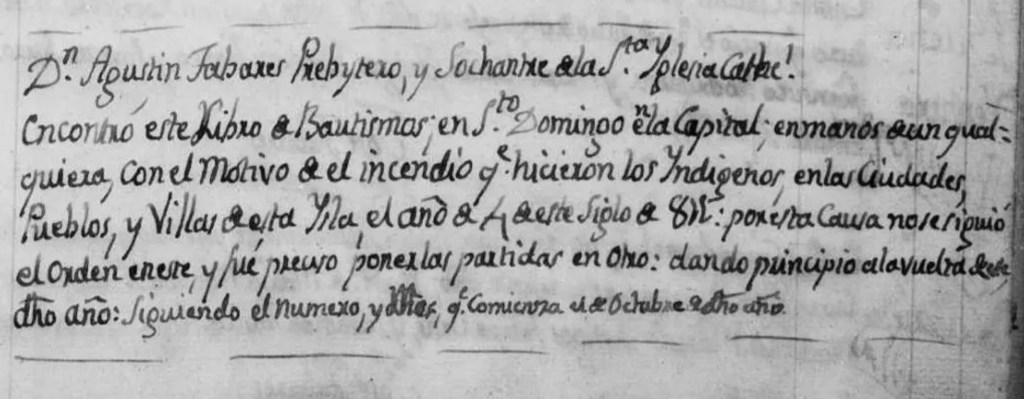 Dn. Agustin Tabares Prebytero, y Sochantre de la Sta. Yglesia Cathel.
Encontró este Libro de Bautismos; en Sto. Domingo en la Capital; en manos de un qual=
quiera, con el Motivo de el incendio qe. hicieron los Yndigenos, en las Ciudades,
Pueblos, y Villas de esta Ysla, el año de 4 de este Siglo de 8
: por esta Causa no se siguió
el Orden en este, y fué preciso poner las partidas en Otro: dando principio a la vuelta de este
dho año: Siguiendo el numero, y
, qe. Comienza
de Octubre de dho año.